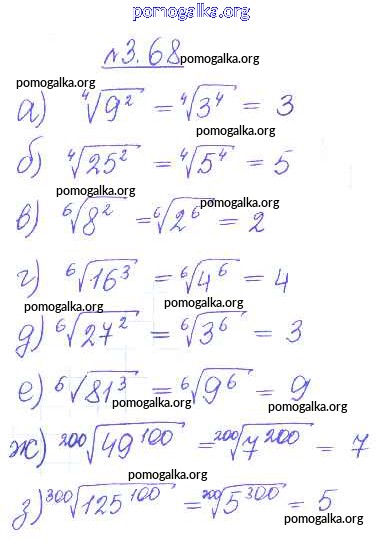 pomogalka.org
№3.68
pomogalka.org
pomogalka.org
а) ⁴√9² = ⁴√3⁴ = 3
pomogalka.org
б) ⁴√25² = ⁴√5⁴ = 5
pomogalka.org
pomogalka.org
в) ⁶√8² = ⁶√2⁶ = 2
г) ⁶√16³ = ⁶√4⁶ = 4
pomogalka.org
pomogalka.org
д) ⁶√27² = ⁶√3⁶ = 3
е) ⁶√81³ = ⁶√9⁶ = 9
pomogalka.org
pomogalka.org
ж) ²⁰⁰√49¹⁰⁰ = ²⁰⁰√7²⁰⁰ = 7
pomogalka.org
з) ³⁰⁰√125¹⁰⁰ = √5³⁰⁰ = 5
pomogalka.org
pomogalka.org